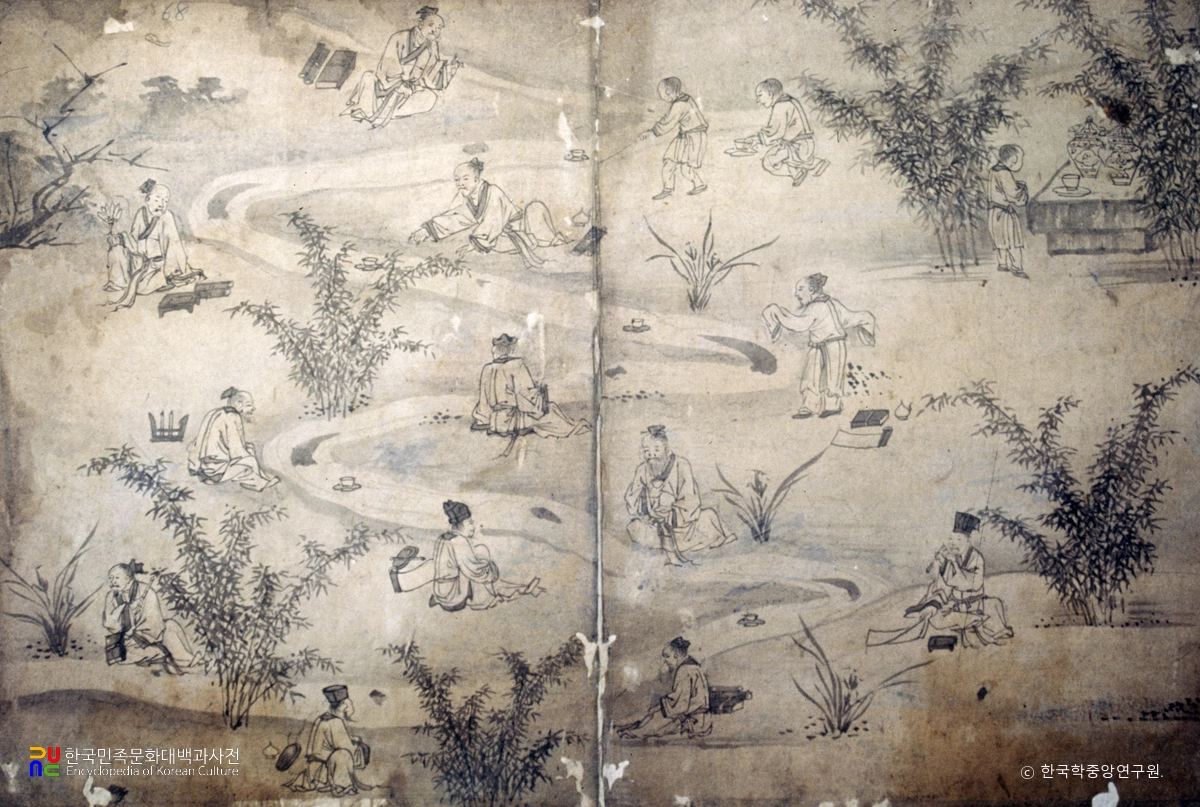 68
한국민족문화대백과사전
Encyclopedia of Korean Culture
ⓒ 한국학중앙연구원.